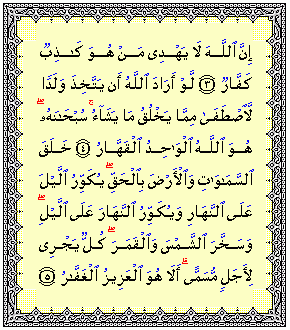 إِنَّ ٱللَّهَ لَا يَهْدِى مَنْ هُوَ كَـٰذِبٌ
كَفَّارٌ ٣ لَّوْ أَرَادَ ٱللَّهُ أَن يَتَّخِذَ وَلَدًا
لَّٱصْطَفَىٰ مِمَّا يَخْلُقُ مَا يَشَآءُ ۚ سُبْحَـٰنَهُۥ ۖ
هُوَ ٱللَّهُ ٱلْوَٰحِدُ ٱلْقَهَّارُ ٤ خَلَقَ
ٱلسَّمَـٰوَٰتِ وَٱلْأَرْضَ بِٱلْحَقِّ ۖ يُكَوِّرُ ٱلَّيْلَ
عَلَى ٱلنَّهَارِ وَيُكَوِّرُ ٱلنَّهَارَ عَلَى ٱلَّيْلِ ۖ
وَسَخَّرَ ٱلشَّمْسَ وَٱلْقَمَرَ ۖ كُلٌّ يَجْرِى
لِأَجَلٍ مُّسَمًّى ۗ أَلَا هُوَ ٱلْعَزِيزُ ٱلْغَفَّـٰرُ ٥